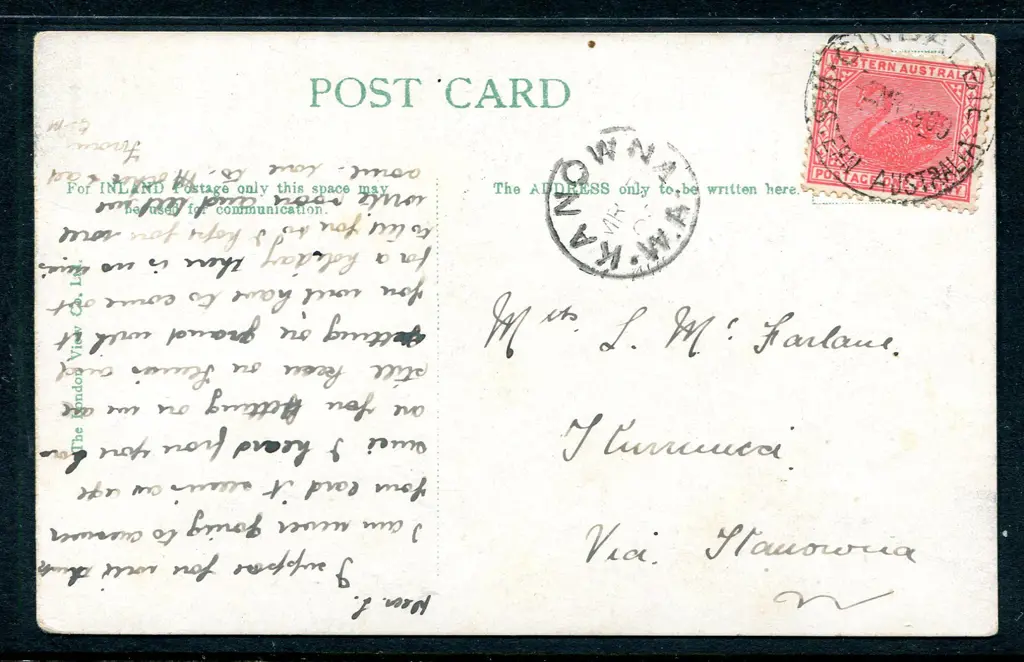 POST CARD
For INLAND Postage only this space may
be used for communication.
The ADDRESS only to be written here.
The London View Co. Ltd.
WESTERN AUSTRALIA
POSTAGE PENNY
WESTERN AUSTRALIA
KANOWNA W.A.
Miss L. Mc Farlane.
Kurnucci
Via. Kanowna
Dear L.
I suppose you will think
I am never going to answer
your card it seems an age
since I heard from you how
are you getting on we are
still keen on Tennis and
getting on grand will it
you will have to come out
for a holiday there is no
to tell you so I hope you will
write soon and let me
some love to Mother & ad
From